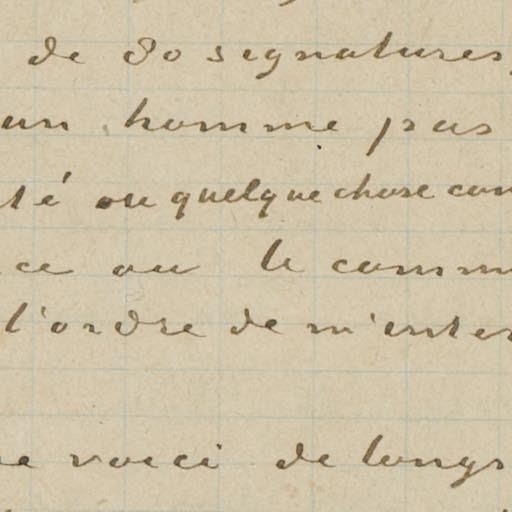 de 80 signatures,
un homme pas
té ou quelque chose com
ce ou le comm
l'ordre de m'enter
e voici de longs